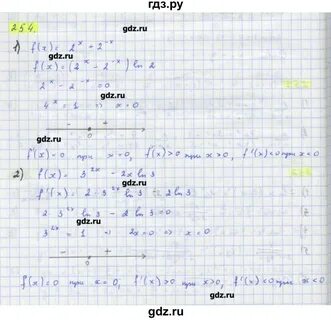 гдз.ру
254.
1) f(x) = 2^x + 2^-x
f(x) = (2^x - 2^-x) ln 2
2^x - 2^-x = 0
4^x = 1 => x = 0
- +
0
f'(x) = 0 при x = 0, f'(x) > 0 при x > 0, f'(x) < 0 при x < 0
2) f(x) = 3^2x - 2x ln 3
f'(x) = 2·3^2x ln 3 - 2 ln 3
2·3^2x ln 3 - 2 ln 3 = 0
3^2x = 1 2x = 0 => x = 0
- +
0
f(x) = 0 при x = 0, f'(x) > 0 при x > 0, f'(x) < 0 при x < 0
гдз.ру